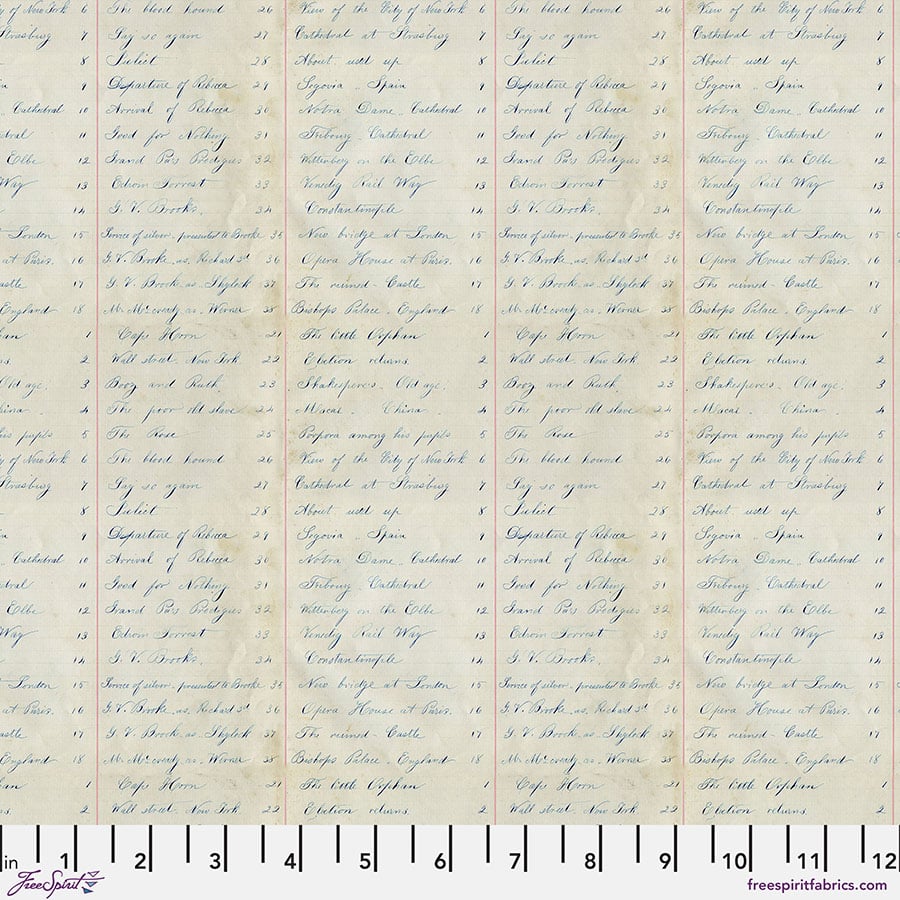 of New York 6 The blood hound 26 View of the City of New York 6 The blood hound 26 View of the City of New York 6
Strasburg 7 Say so again 27 Cathedral at Strasburg 7 Say so again 27 Cathedral at Strasburg 7
8 Juliet 28 About used up 8 Juliet 28 About used up 8
9 Departure of Rebecca 29 Segovia .. Spain 9 Departure of Rebecca 29 Segovia .. Spain 9
Cathedral 10 Arrival of Rebecca 30 Notra Dame. Cathedral 10 Arrival of Rebecca 30 Notra Dame. Cathedral 10
dral 11 Good for Nothing 31 Fribourg Cathedral 11 Good for Nothing 31 Fribourg Cathedral 11
Elbe 12 Grand Pa's Prodigies 32 Wittenberg on the Elbe 12 Grand Pa's Prodigies 32 Wittenberg on the Elbe 12
Way 13 Edwin Forrest 33 Rail Way 13 Edwin Forrest 33 Rail Way 13
14 G. V. Brooks. 34 Constantinople 14 G. V. Brooks. 34 Constantinople 14
London 15 of silver. presented to Brooke 35 New bridge at London 15 of silver. presented to Brooke 35 New bridge at London 15
at Paris. 16 G. V. Brooke. as. Richard 3d 36 Opera House at Paris. 16 G. V. Brooke. as. Richard 3d 36 Opera House at Paris. 16
astle 17 G. V. Brook. as. Shylock 37 The ruined - Castle 17 G. V. Brook. as. Shylock 37 The ruined - Castle 17
England 18 Mr. McCready as. Werner 38 Bishops Palace. England 18 Mr. McCready as. Werner 38 Bishops Palace. England 18
han 1 Cape Horn 21 The little Orphan 1 Cape Horn 21 The little Orphan 1
s. 2 Wall street. New York 22 Election returns. 2 Wall street. New York 22 Election returns. 2
Old age. 3 Booz and Ruth 23 Shakespere's. Old age. 3 Booz and Ruth 23 Shakespere's. Old age. 3
hina. 4 The poor old slave 24 Macai. China. 4 The poor old slave 24 Macai. China. 4
his pupils 5 The Rose 25 Porpora among his pupils 5 The Rose 25 Porpora among his pupils 5
of New York 6 The blood hound 26 View of the City of New York 6 The blood hound 26 View of the City of New York 6
Strasburg 7 Say so again 27 Cathedral at Strasburg 7 Say so again 27 Cathedral at Strasburg 7
8 Juliet 28 About used up 8 Juliet 28 About used up 8
9 Departure of Rebecca 29 Segovia .. Spain 9 Departure of Rebecca 29 Segovia .. Spain 9
Cathedral 10 Arrival of Rebecca 30 Notra Dame. Cathedral 10 Arrival of Rebecca 30 Notra Dame. Cathedral 10
dral 11 Good for Nothing 31 Fribourg Cathedral 11 Good for Nothing 31 Fribourg Cathedral 11
Elbe 12 Grand Pa's Prodigies 32 Wittenberg on the Elbe 12 Grand Pa's Prodigies 32 Wittenberg on the Elbe 12
Way 13 Edwin Forrest 33 Rail Way 13 Edwin Forrest 33 Rail Way 13
14 G. V. Brooks. 34 Constantinople 14 G. V. Brooks. 34 Constantinople 14
London 15 of silver. presented to Brooke 35 New bridge at London 15 of silver. presented to Brooke 35 New bridge at London 15
at Paris. 16 G. V. Brooke. as. Richard 3d 36 Opera House at Paris. 16 G. V. Brooke. as. Richard 3d 36 Opera House at Paris. 16
astle 17 G. V. Brook. as. Shylock 37 The ruined - Castle 17 G. V. Brook. as. Shylock 37 The ruined - Castle 17
England 18 Mr. McCready as. Werner 38 Bishops Palace. England 18 Mr. McCready as. Werner 38 Bishops Palace. England 18
han 1 Cape Horn 21 The little Orphan 1 Cape Horn 21 The little Orphan 1
s. 2 Wall street. New York 22 Election returns. 2 Wall street. New York 22 Election returns. 2
in 1 2 3 4 5 6 7 8 9 10 11 12
FreeSpirit
freespiritfabrics.com